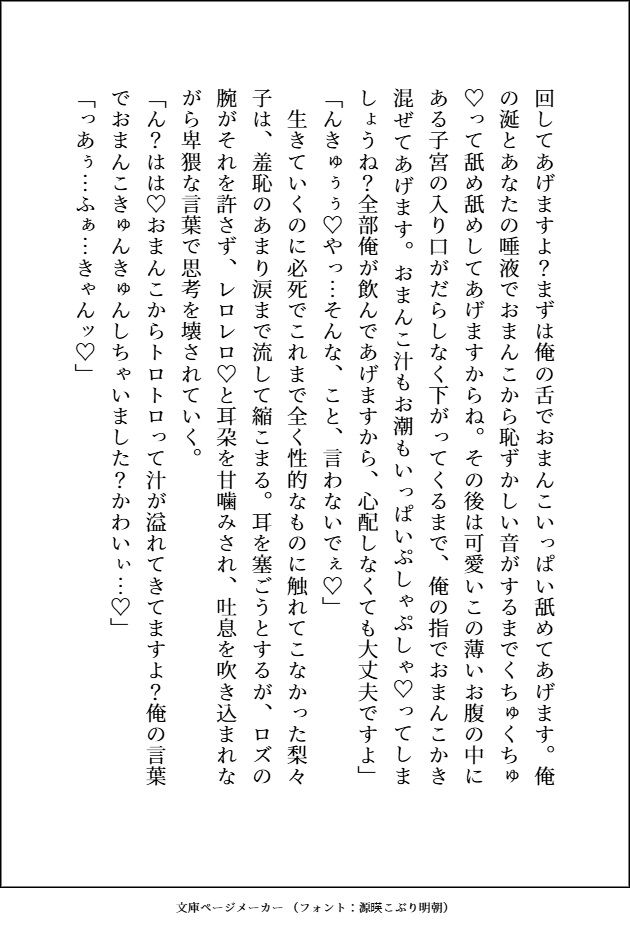 回してあげますよ？まずは俺の舌でおまんこいっぱい舐めてあげます。俺
の涎とあなたの唾液でおまんこから恥ずかしい音がするまでくちゅくちゅ
♡って舐め舐めしてあげますからね。その後は可愛いこの薄いお腹の中に
ある子宮の入り口がだらしなく下がってくるまで、俺の指でおまんこかき
混ぜてあげます。おまんこ汁もお潮もいっぱいぷしゃぷしゃ♡ってしま
しょうね？全部俺が飲んであげますから、心配しなくても大丈夫ですよ」
「んきゅぅぅ♡やっ…そんな、こと、言わないでぇ♡」
　生きていくのに必死でこれまで全く性的なものに触れてこなかった梨々
子は、羞恥のあまり涙まで流して縮こまる。耳を塞ごうとするが、ロズの
腕がそれを許さず、レロレロ♡と耳朶を甘噛みされ、吐息を吹き込まれな
がら卑猥な言葉で思考を壊されていく。
「ん？はは♡おまんこからトロトロって汁が溢れてきてますよ？俺の言葉
でおまんこきゅんきゅんしちゃいました？かわいぃ…♡」
「っあぅ…ふぁ…きゃんッ♡」
文庫ページメーカー （フォント：源暎こぶり明朝）